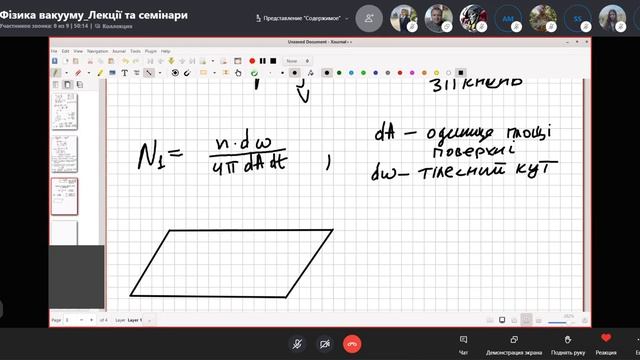 Фізика вакууму_Лекції та семінари
Участников звонка: 8 из 9 | 50:14 | Коллекция
Представление "Содержимое"
AM
SS
Unsaved Document - Xournal++
File Edit View Navigation Journal Tools Plugin Help
зіткнень
N₁ = n·dω / 4π dA dt ,
dA – одиниця площі
поверхні
dω – тілесний кут
Page 3 of 4 Layer Layer 1
262%
Чат
Демонстрация экрана
Поднять руку
Реакция